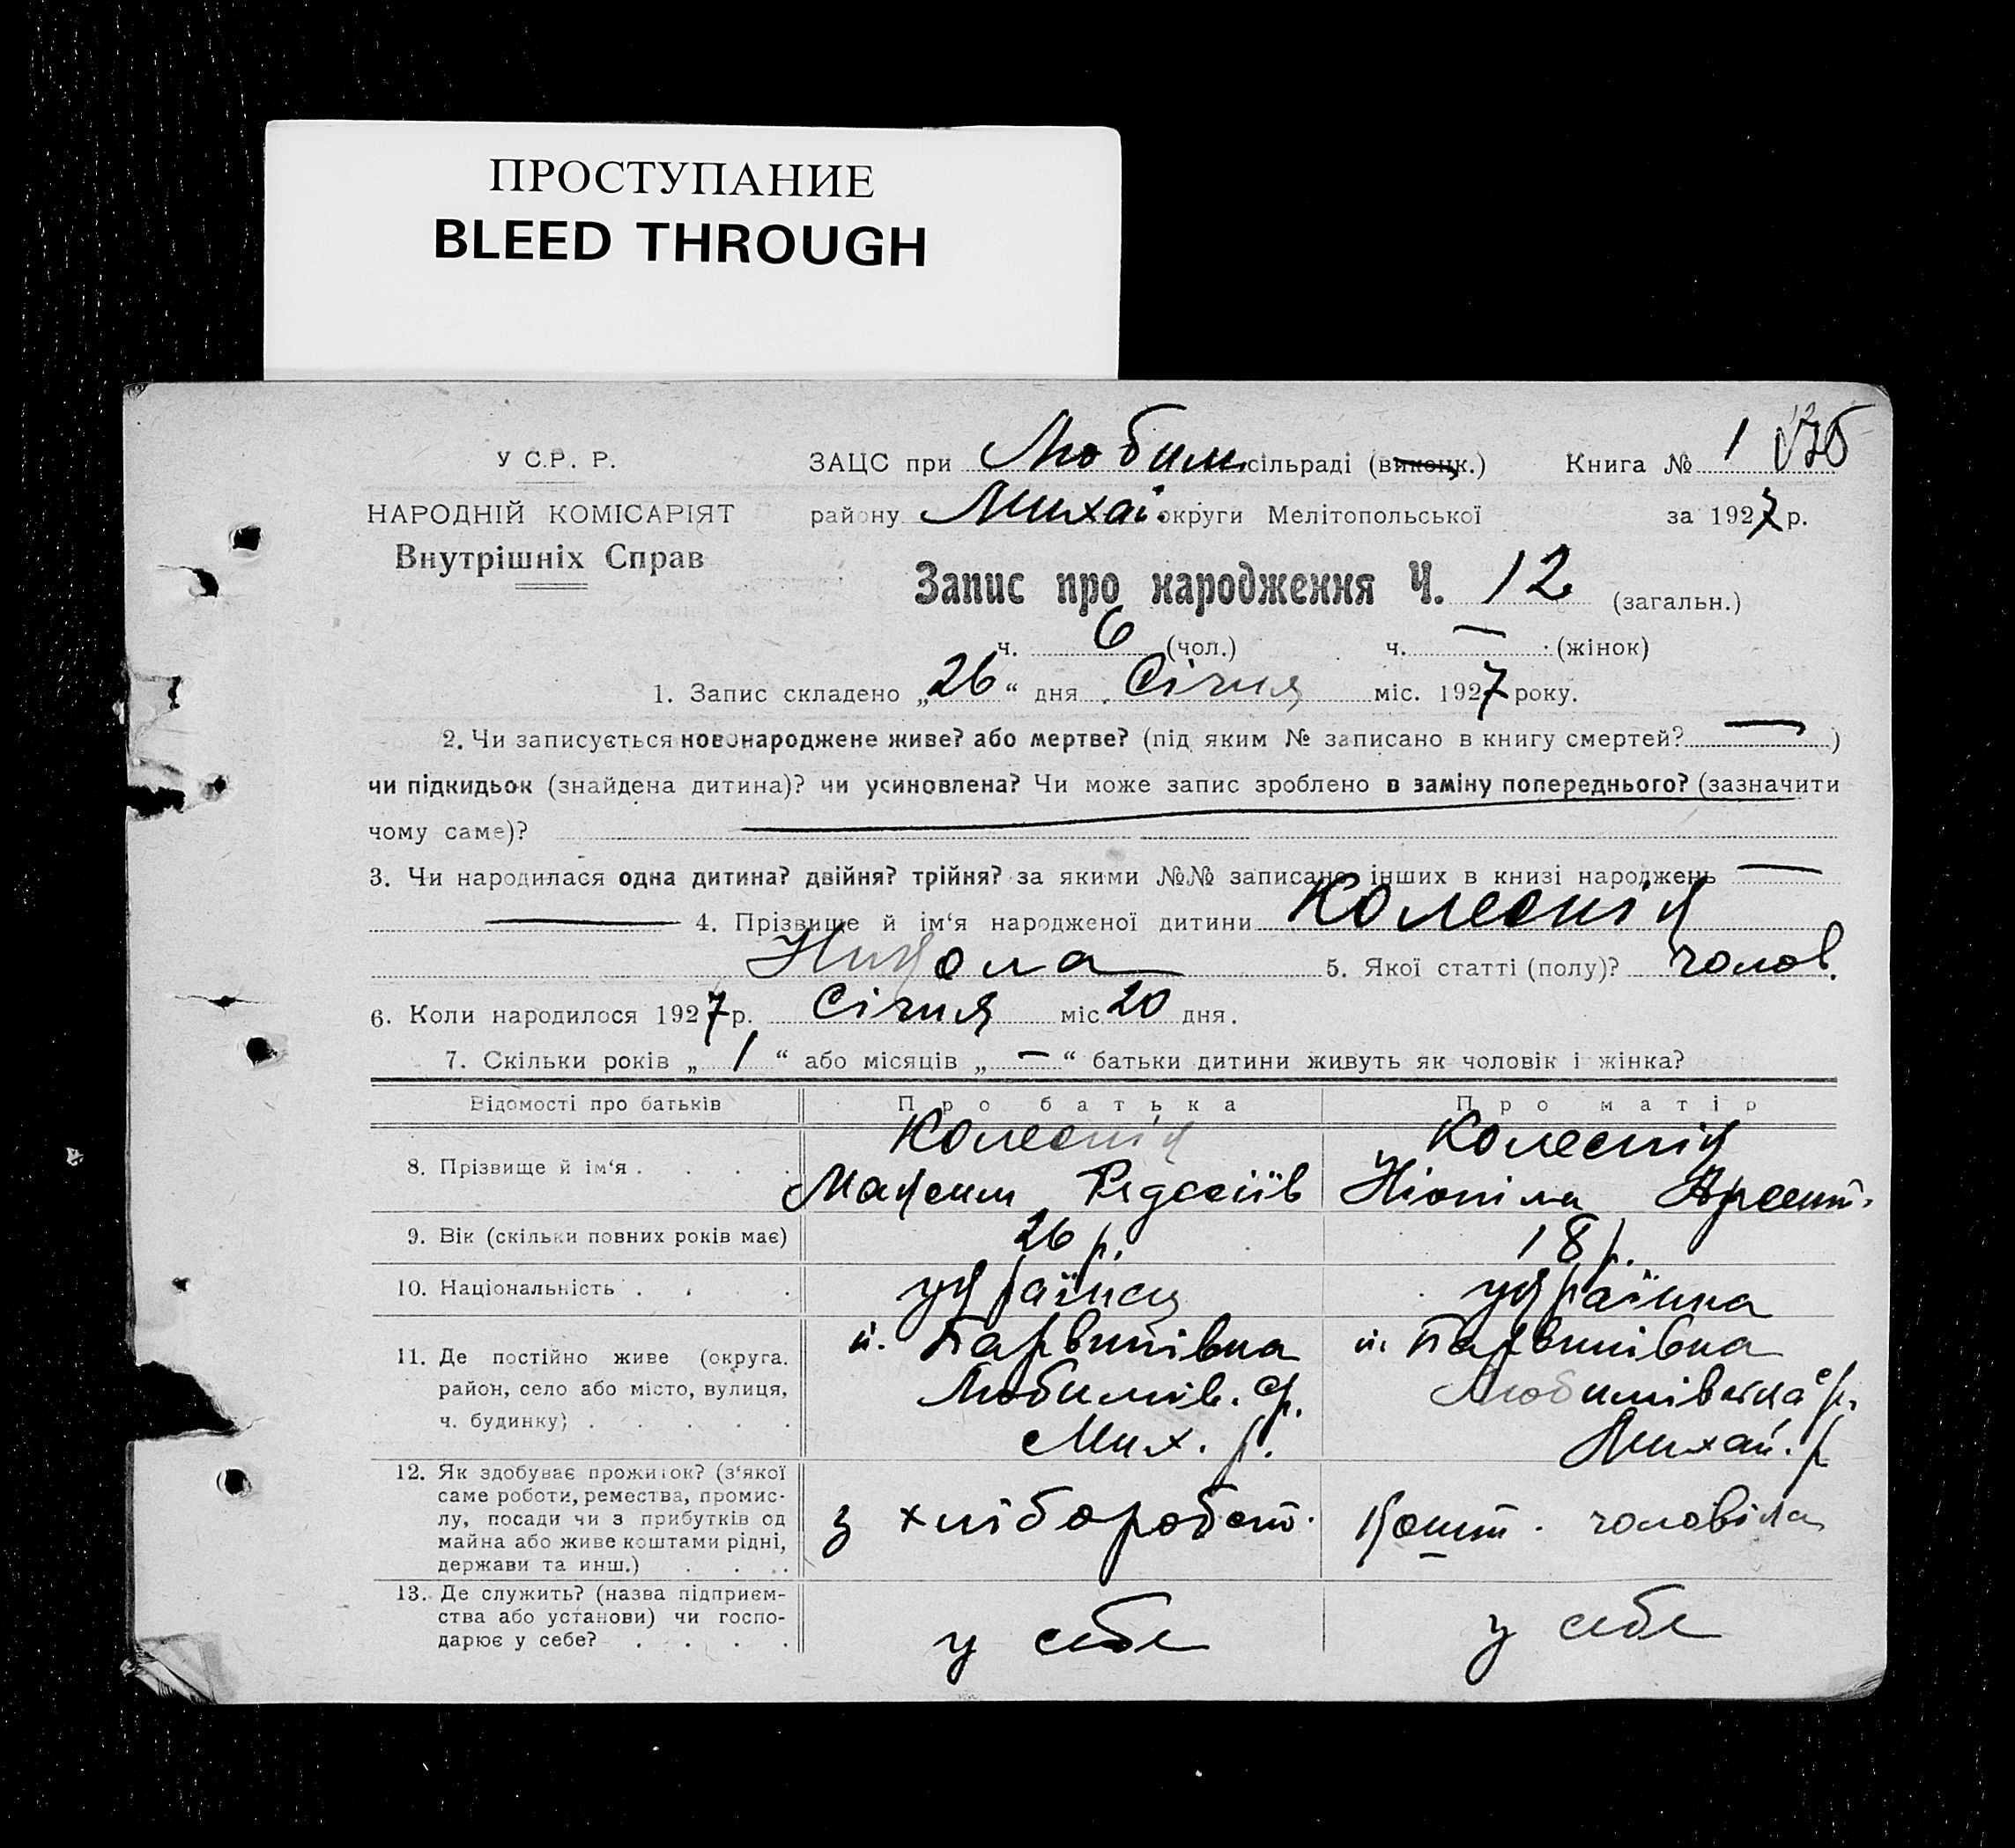 ПРОСТУПАНИЕ
BLEED THROUGH
У С.Р. Р.
НАРОДНІЙ КОМІСАРІЯТ
Внутрішніх Справ
ЗАЦС при Любим сільраді (виконк.) Книга № 1
району Михай. округи Мелітопольської за 1927 р.
Запис про народження Ч. 12 (загальн.)
ч. 6 (чол.) ч. — (жінок)
1. Запис складено „26“ дня Січня міс. 1927 року.
2. Чи записується новонароджене живе? або мертве? (під яким № записано в книгу смертей? — )
чи підкидьок (знайдена дитина)? чи усиновлена? Чи може запис зроблено в заміну попереднього? (зазначити
чому саме)? —
3. Чи народилася одна дитина? двійня? трійня? за якими №№ записано інших в книзі народжень —
— 4. Прізвище й ім‘я народженої дитини Колеснік
Никола 5. Якої статті (полу)? чолов.
6. Коли народилося 1927 р. Січня міс. 20 дня.
7. Скільки років „1“ або місяців „—“ батьки дитини живуть як чоловік і жінка?
Відомості про батьків Про батька Про матір
8. Прізвище й ім‘я . . . . Колеснік Колеснік
Максим
9. Вік (скільки повних років має) 26 р. 18 р.
10. Національність . . . . українец українка
11. Де постійно живе (округа, район, село або місто, вулиця, ч. будинку) . . . . .
п. Барвинівка
Любимів. с/р.
Мих. р.
п. Барвинівка
Любимівська с/р.
Михай. р
12. Як здобуває прожиток? (з‘якої
саме роботи, ремества, промис-
лу, посади чи з прибутків од
майна або живе коштами рідні,
держави та инш.) . . . .
з хліборобст. Кошт. чоловіка
13. Де служить? (назва підприєм-
ства або установи) чи госпо-
дарює у себе? . . . .
у себе у себе